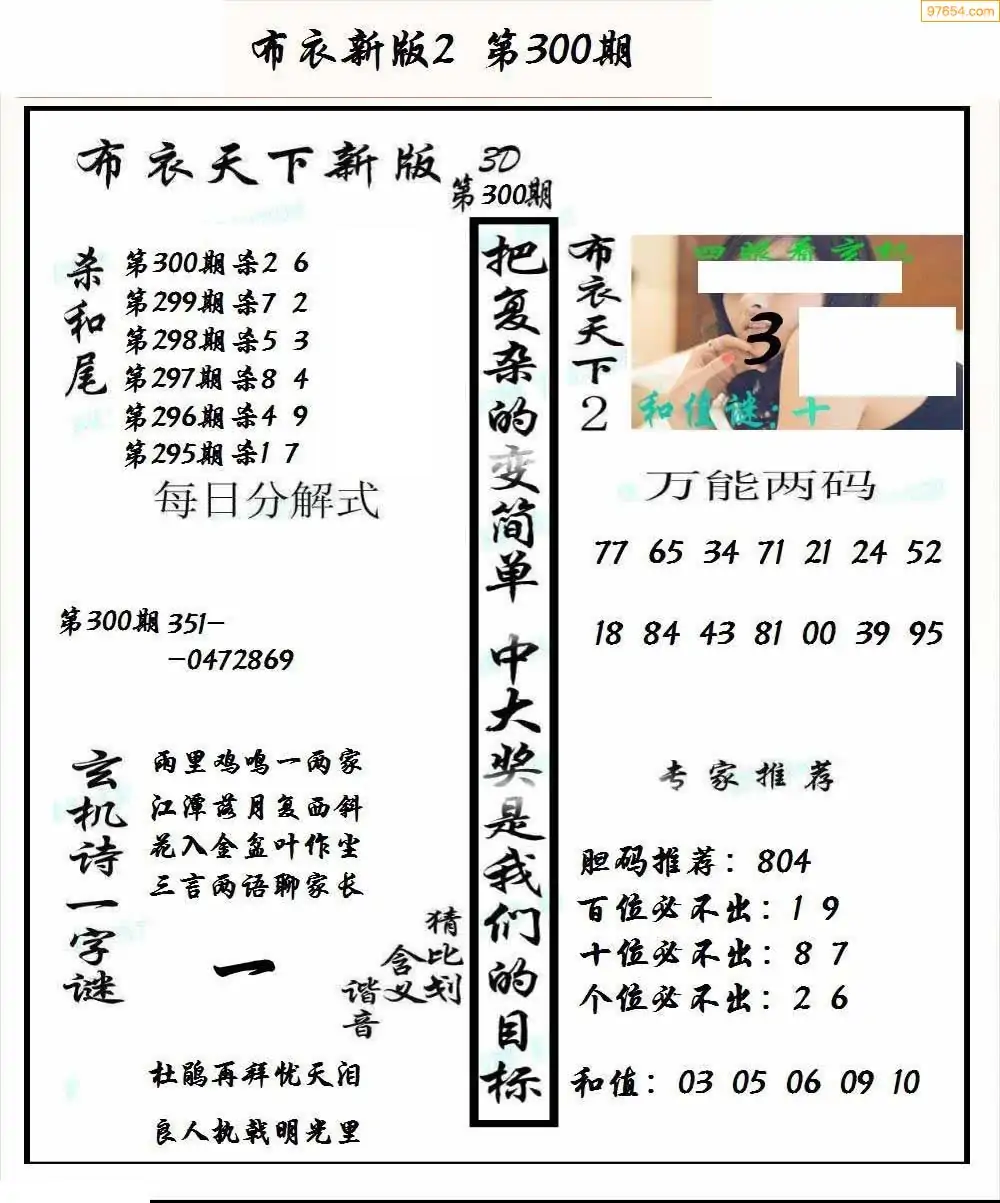 97654.com
布衣新版2 第300期
布衣天下新版
3D
第300期
杀和尾
第300期杀2 6
第299期杀7 2
第298期杀5 3
第297期杀8 4
第296期杀4 9
第295期杀1 7
每日分解式
第300期351-
-0472869
玄机诗一字谜
雨里鸡鸣一两家
江潭落月复西斜
花入金盆叶作尘
三言两语聊家长
一
猜比划
含义
谐音
杜鹃再拜忧天泪
良人执戟明光里
把复杂的变简单 中大奖是我们的目标
布衣天下2
四眼看玄机
3
和值谜:十
万能两码
77 65 34 71 21 24 52
18 84 43 81 00 39 95
专家推荐
胆码推荐：804
百位必不出：1 9
十位必不出：8 7
个位必不出：2 6
和值：03 05 06 09 10